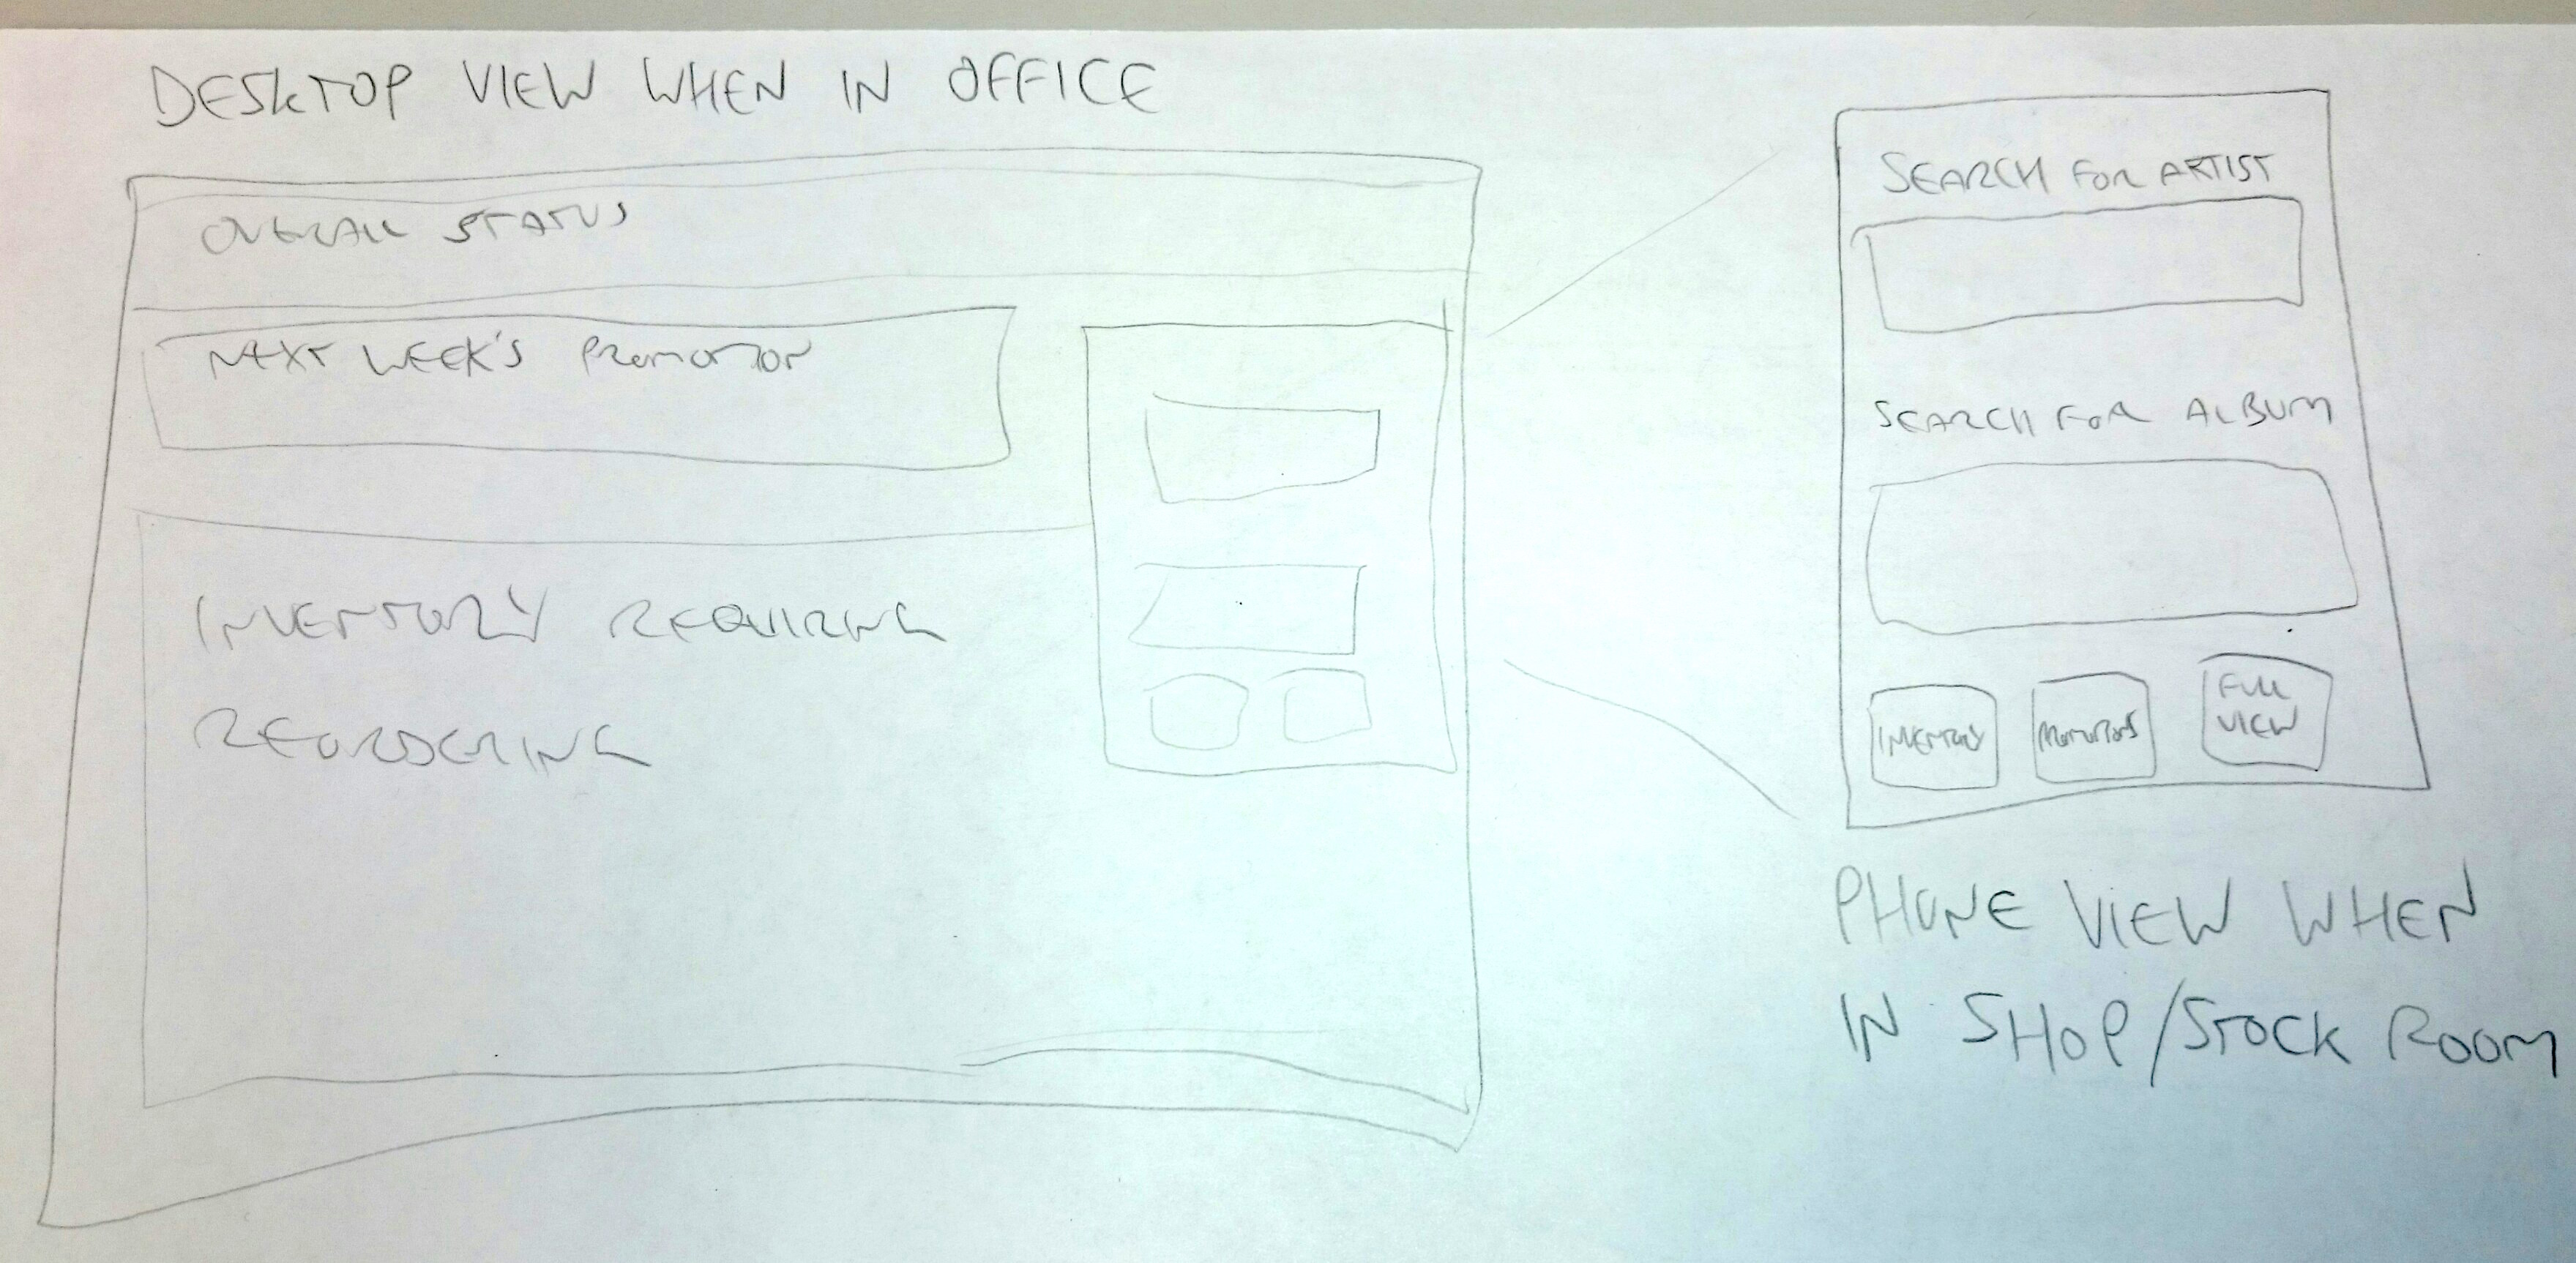 DESKTOP VIEW WHEN IN OFFICE
OVERALL STATUS
NEXT WEEK'S PROMOTION
INVENTORY REQUIRING
REORDERING
SEARCH FOR ARTIST
SEARCH FOR ALBUM
INVENTORY
PROMOTIONS
FULL
VIEW
PHONE VIEW WHEN
IN SHOP/STOCK ROOM